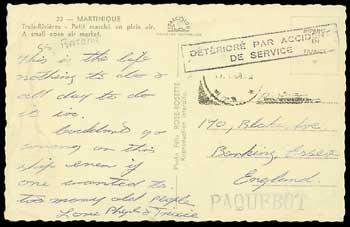 22 — MARTINIQUE
Trois-Rivières - Petit marché en plein air.
A small open air market.
This is the life
nothing to do &
all day to do
it in.
Couldn't go
wrong on this
ship even if
one wanted to.
too many old people
Love Phyl & Trixie
Photo Félix ROSE-ROSETTE
DÉTÉRIORÉ PAR ACCIDENT
DE SERVICE
170, Blake Ave
Barking Essex
England.
PAQUEBOT